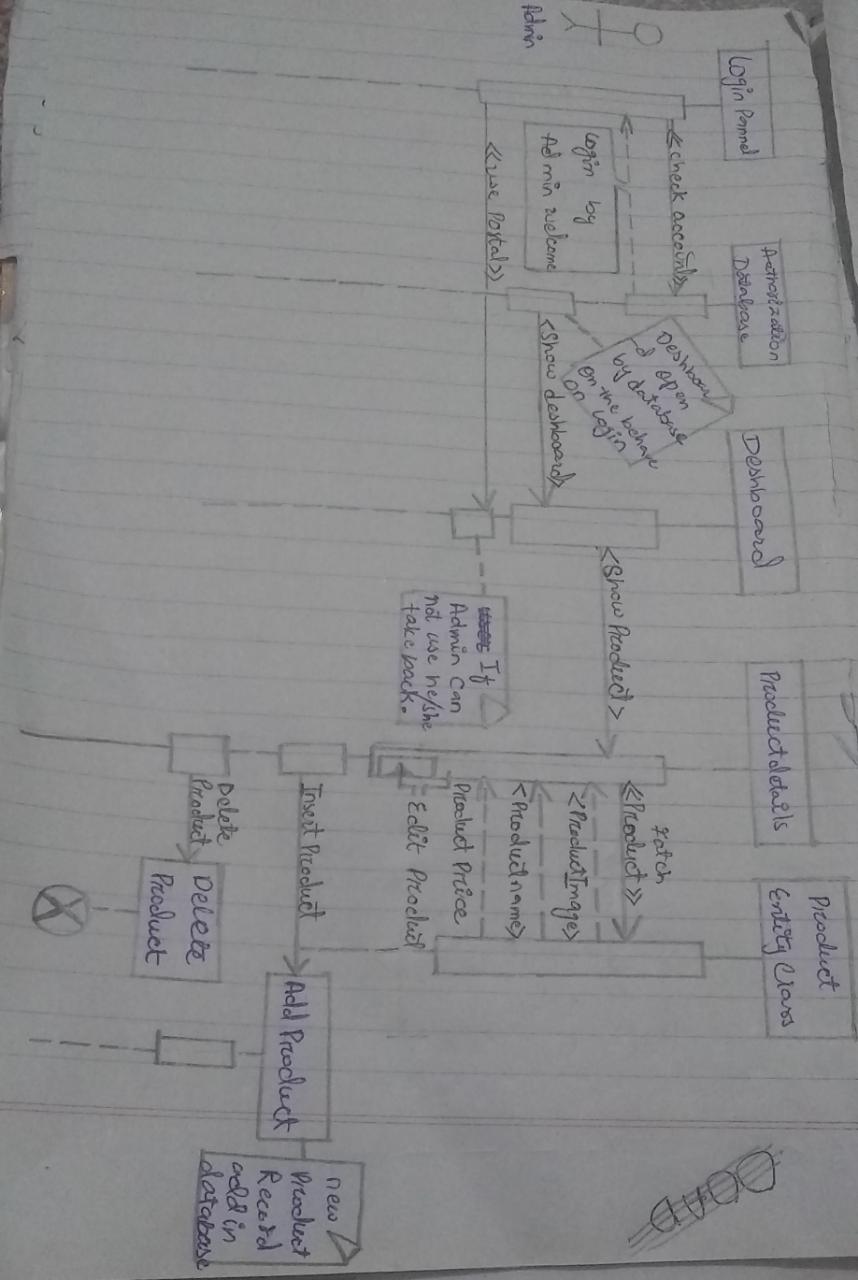 Admin
Login Pannel
Authorization
Database
Deshboard
Product details
Product
Entity Class
<<check account>>
Login by
Admin welcome
<<use Portal>>
Deshboar
d open
by database
on the behave
on login
<Show deshboard>
<Show Product>
If
Admin Can
not use he/she
take back.
Fatch
<<Product>>
<ProductImage>
<Product name>
Product Price
Edit Product
Insert Product
Delete
Product
Delete
Product
Add Product
new
Product
Record
add in
database